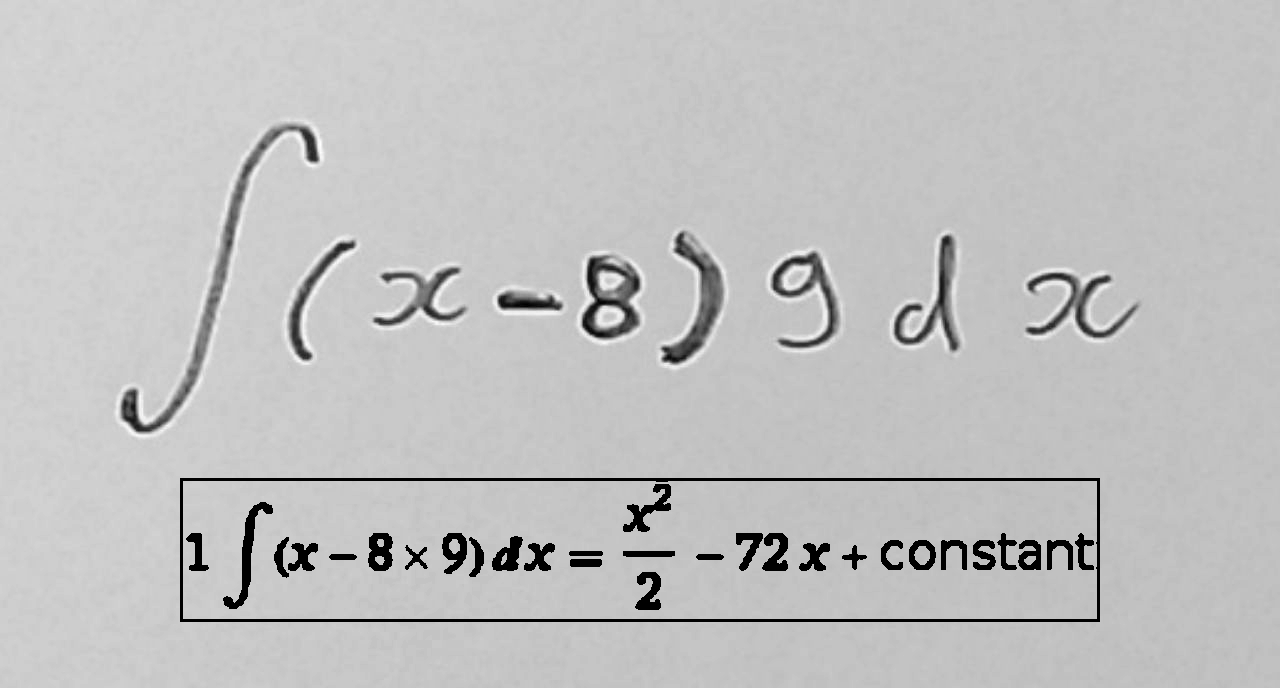 ∫(x-8)9 dx
1 ∫(x − 8 × 9) dx = x²/2 − 72 x + constant